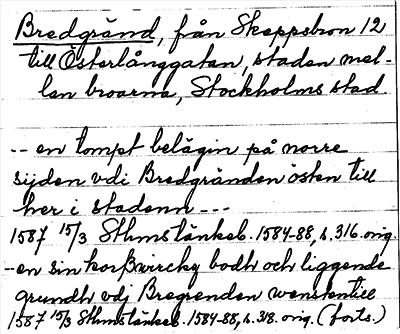 Bredgränd, från Skeppsbron 12
till Österlånggatan, staden mel-
lan broarna, Stockholms stad.
-- en tompt belägin på norre
sijden vdi Bredgränden östen till
her i stadenn ---
1587 15/3 Sthmstänkeb. 1584-88, s. 316. orig.
--en sin korßwirchz bodh och liggende
grundh vdj Bregrenden wenstentill
1587 15/3 Sthmstänkeb. 1584-88, s. 318. orig. (forts.)